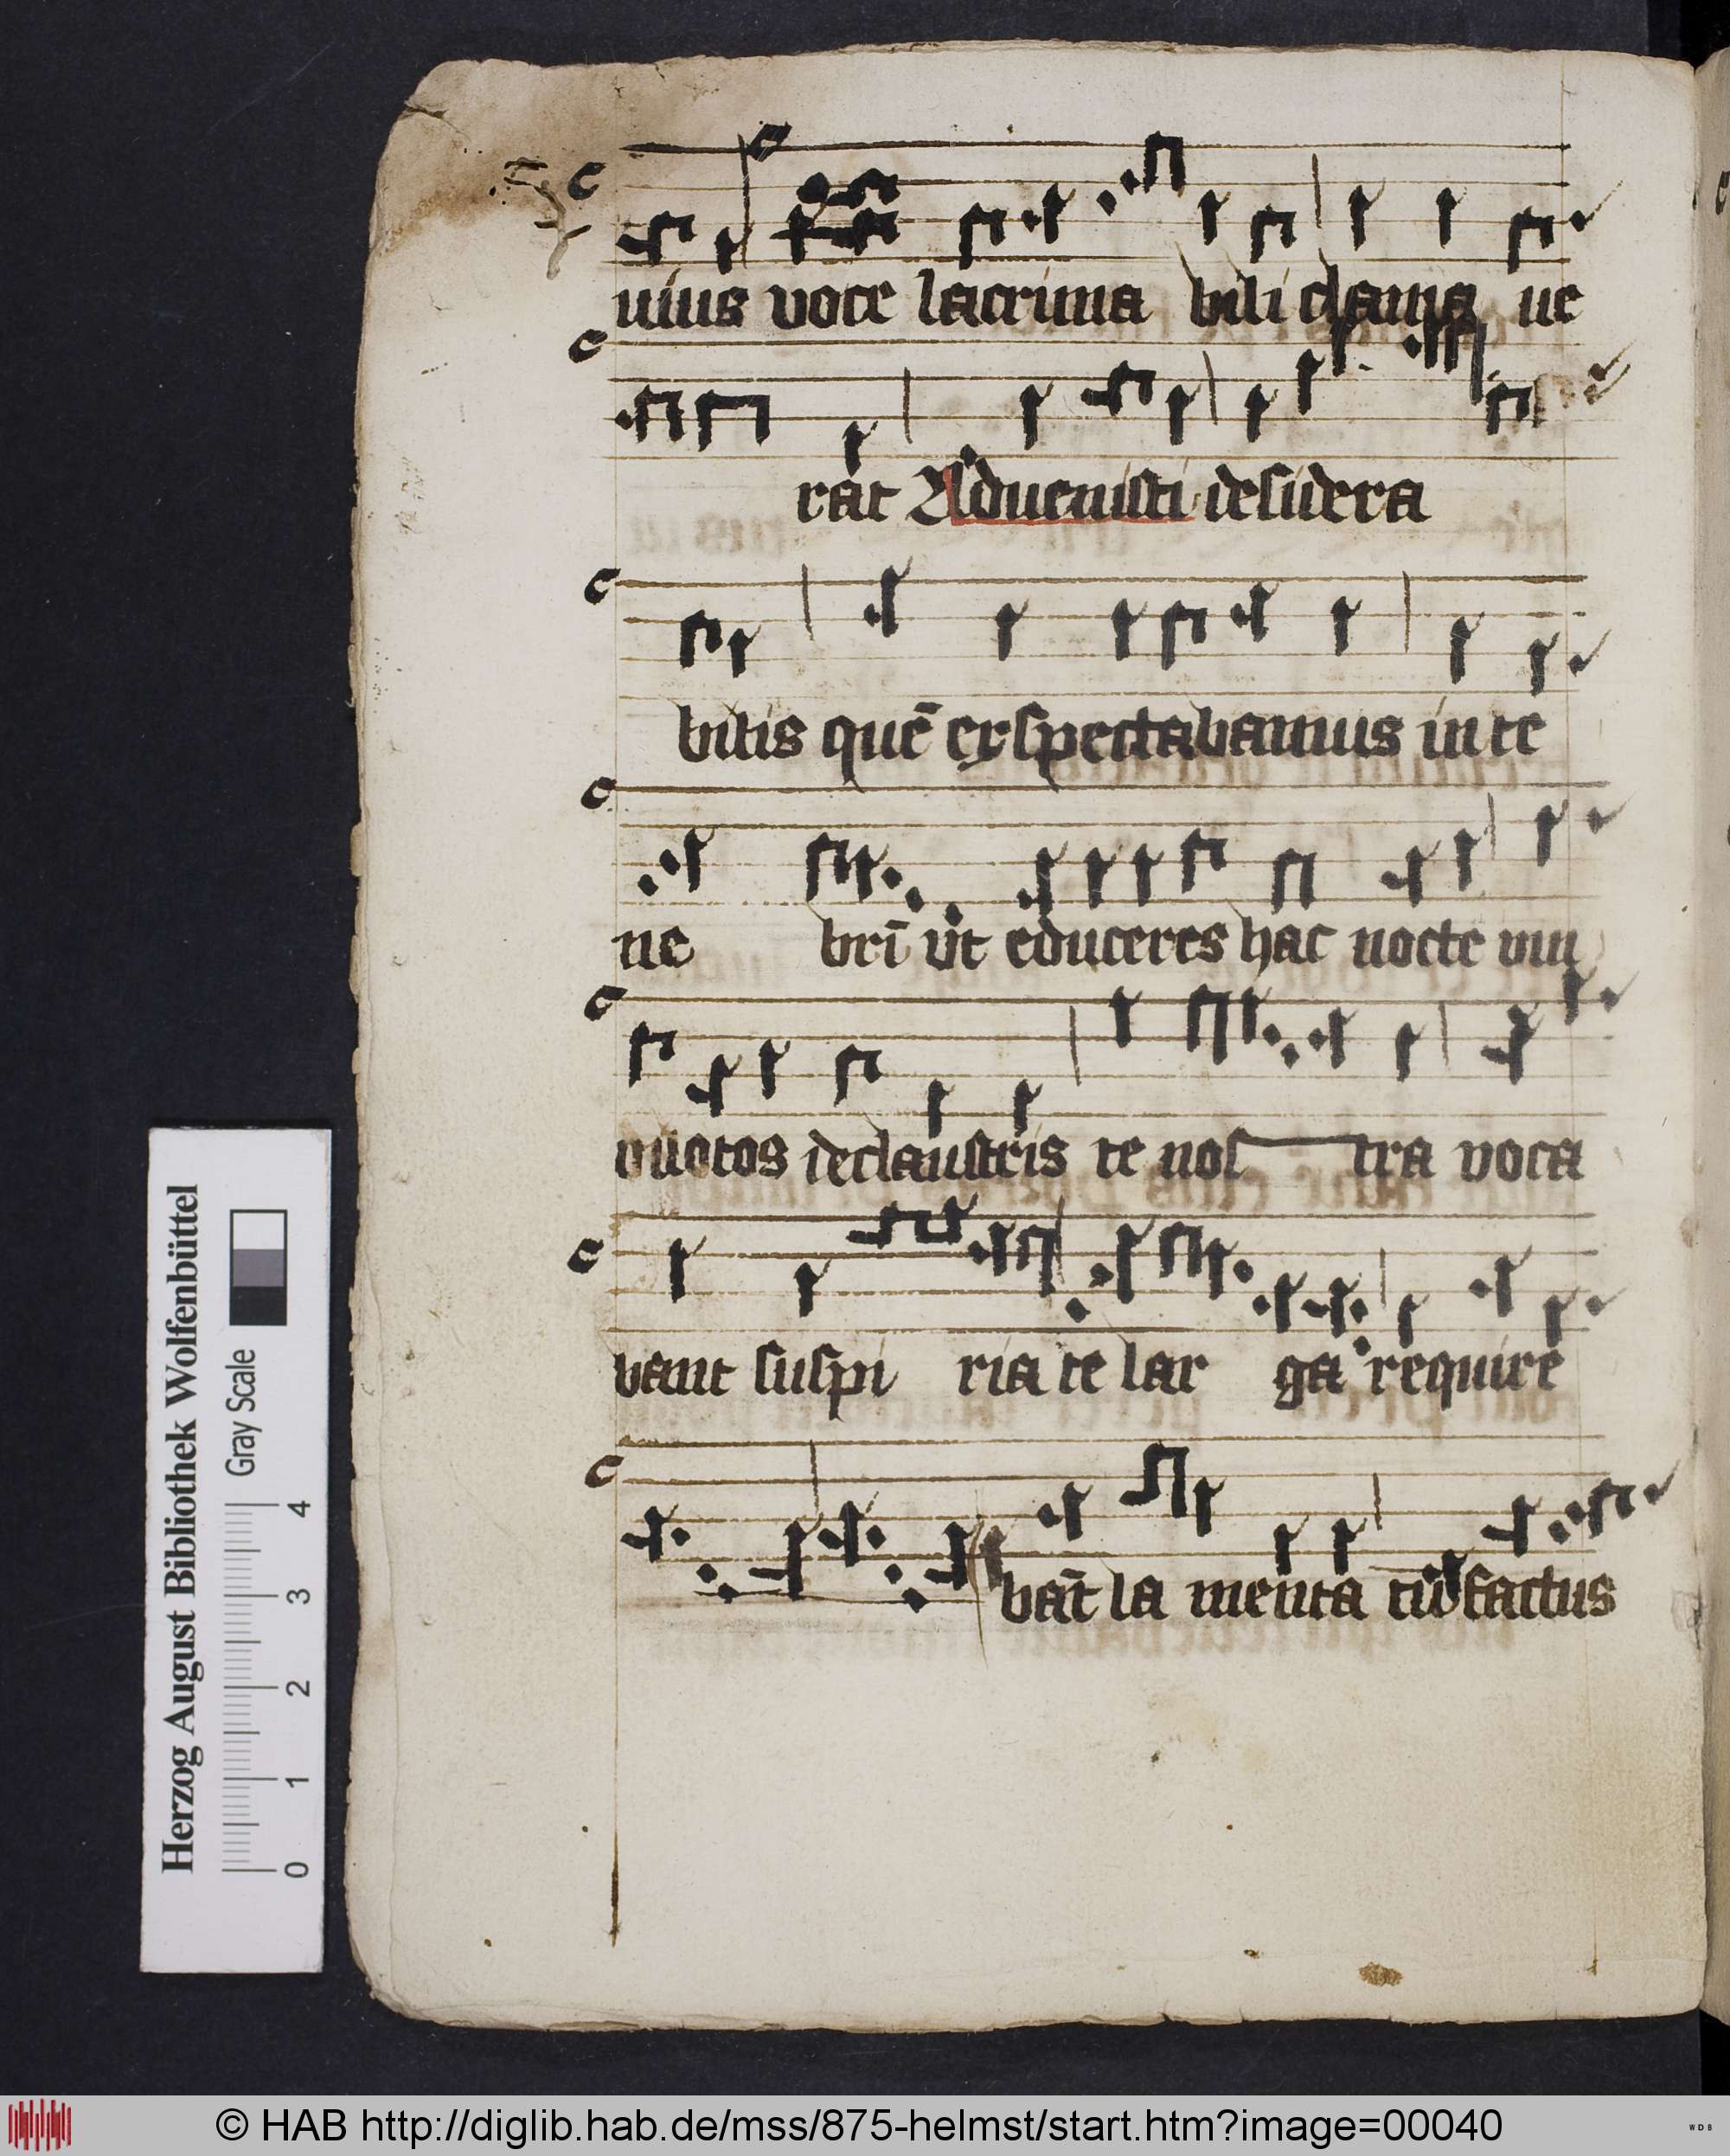 uius voce lacrima bili clama ue
rat Aduenisti desidera
bilis quē exspectabamus in te
ne bri ut educeres hac nocte vin
culatos declaustris te nos tra voca
bant suspi ria te lar ga require
bāt la menta tu factus
Herzog August Bibliothek Wolfenbüttel
Gray Scale
0 1 2 3 4
© HAB http://diglib.hab.de/mss/875-helmst/start.htm?image=00040
WDB